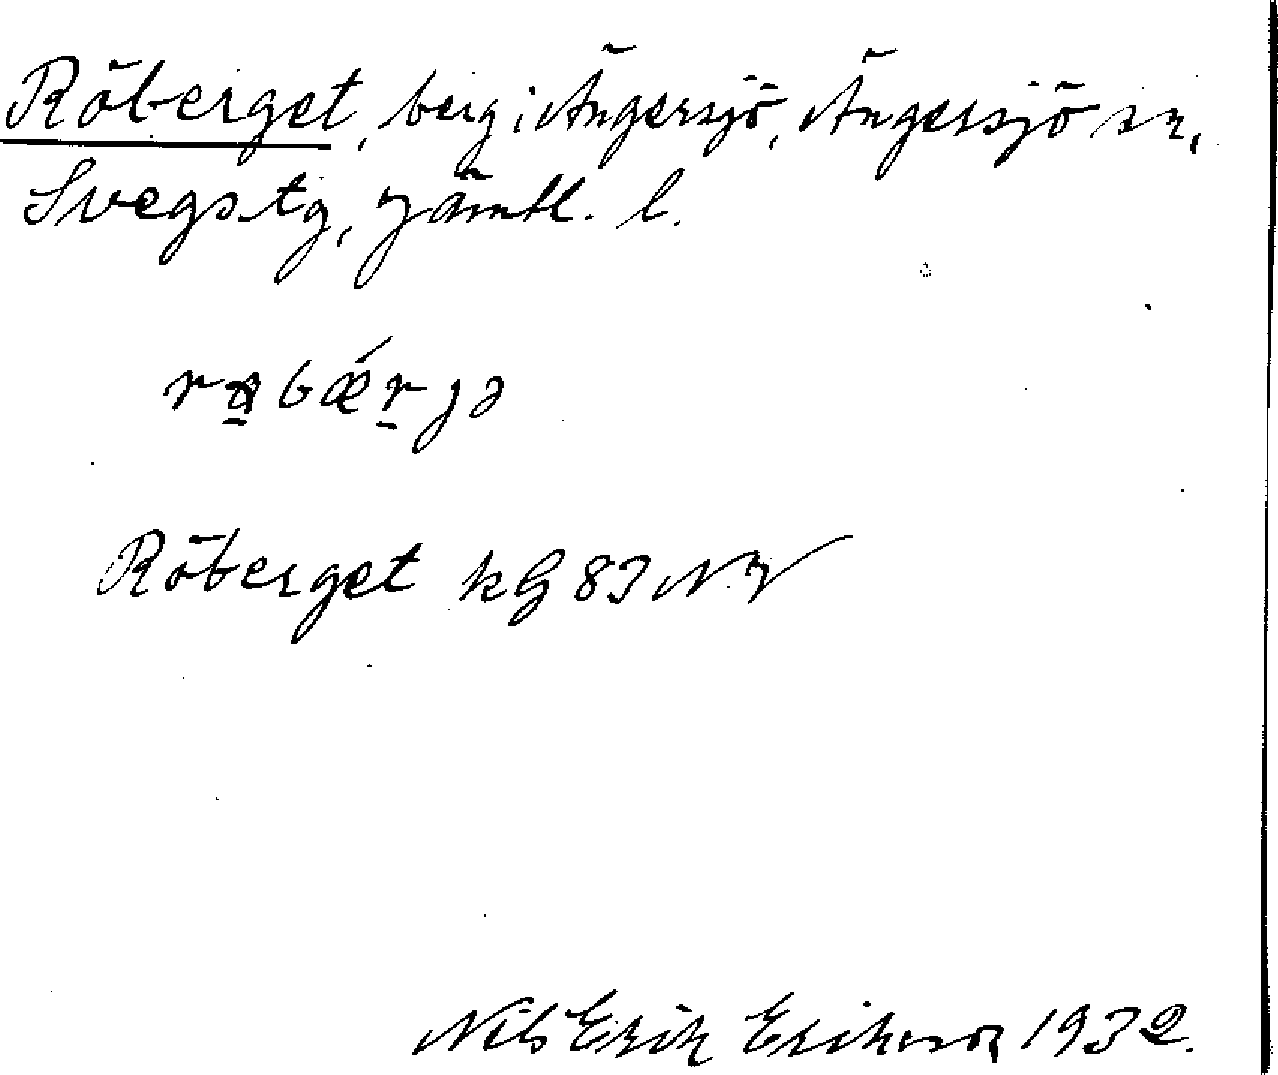 Röberget, berg i Ängersjö, Ängersjö sn,
Svegs tg, Jämtl. l.
Röberget kG 83 NV
Nils Erik Erikson 1932.